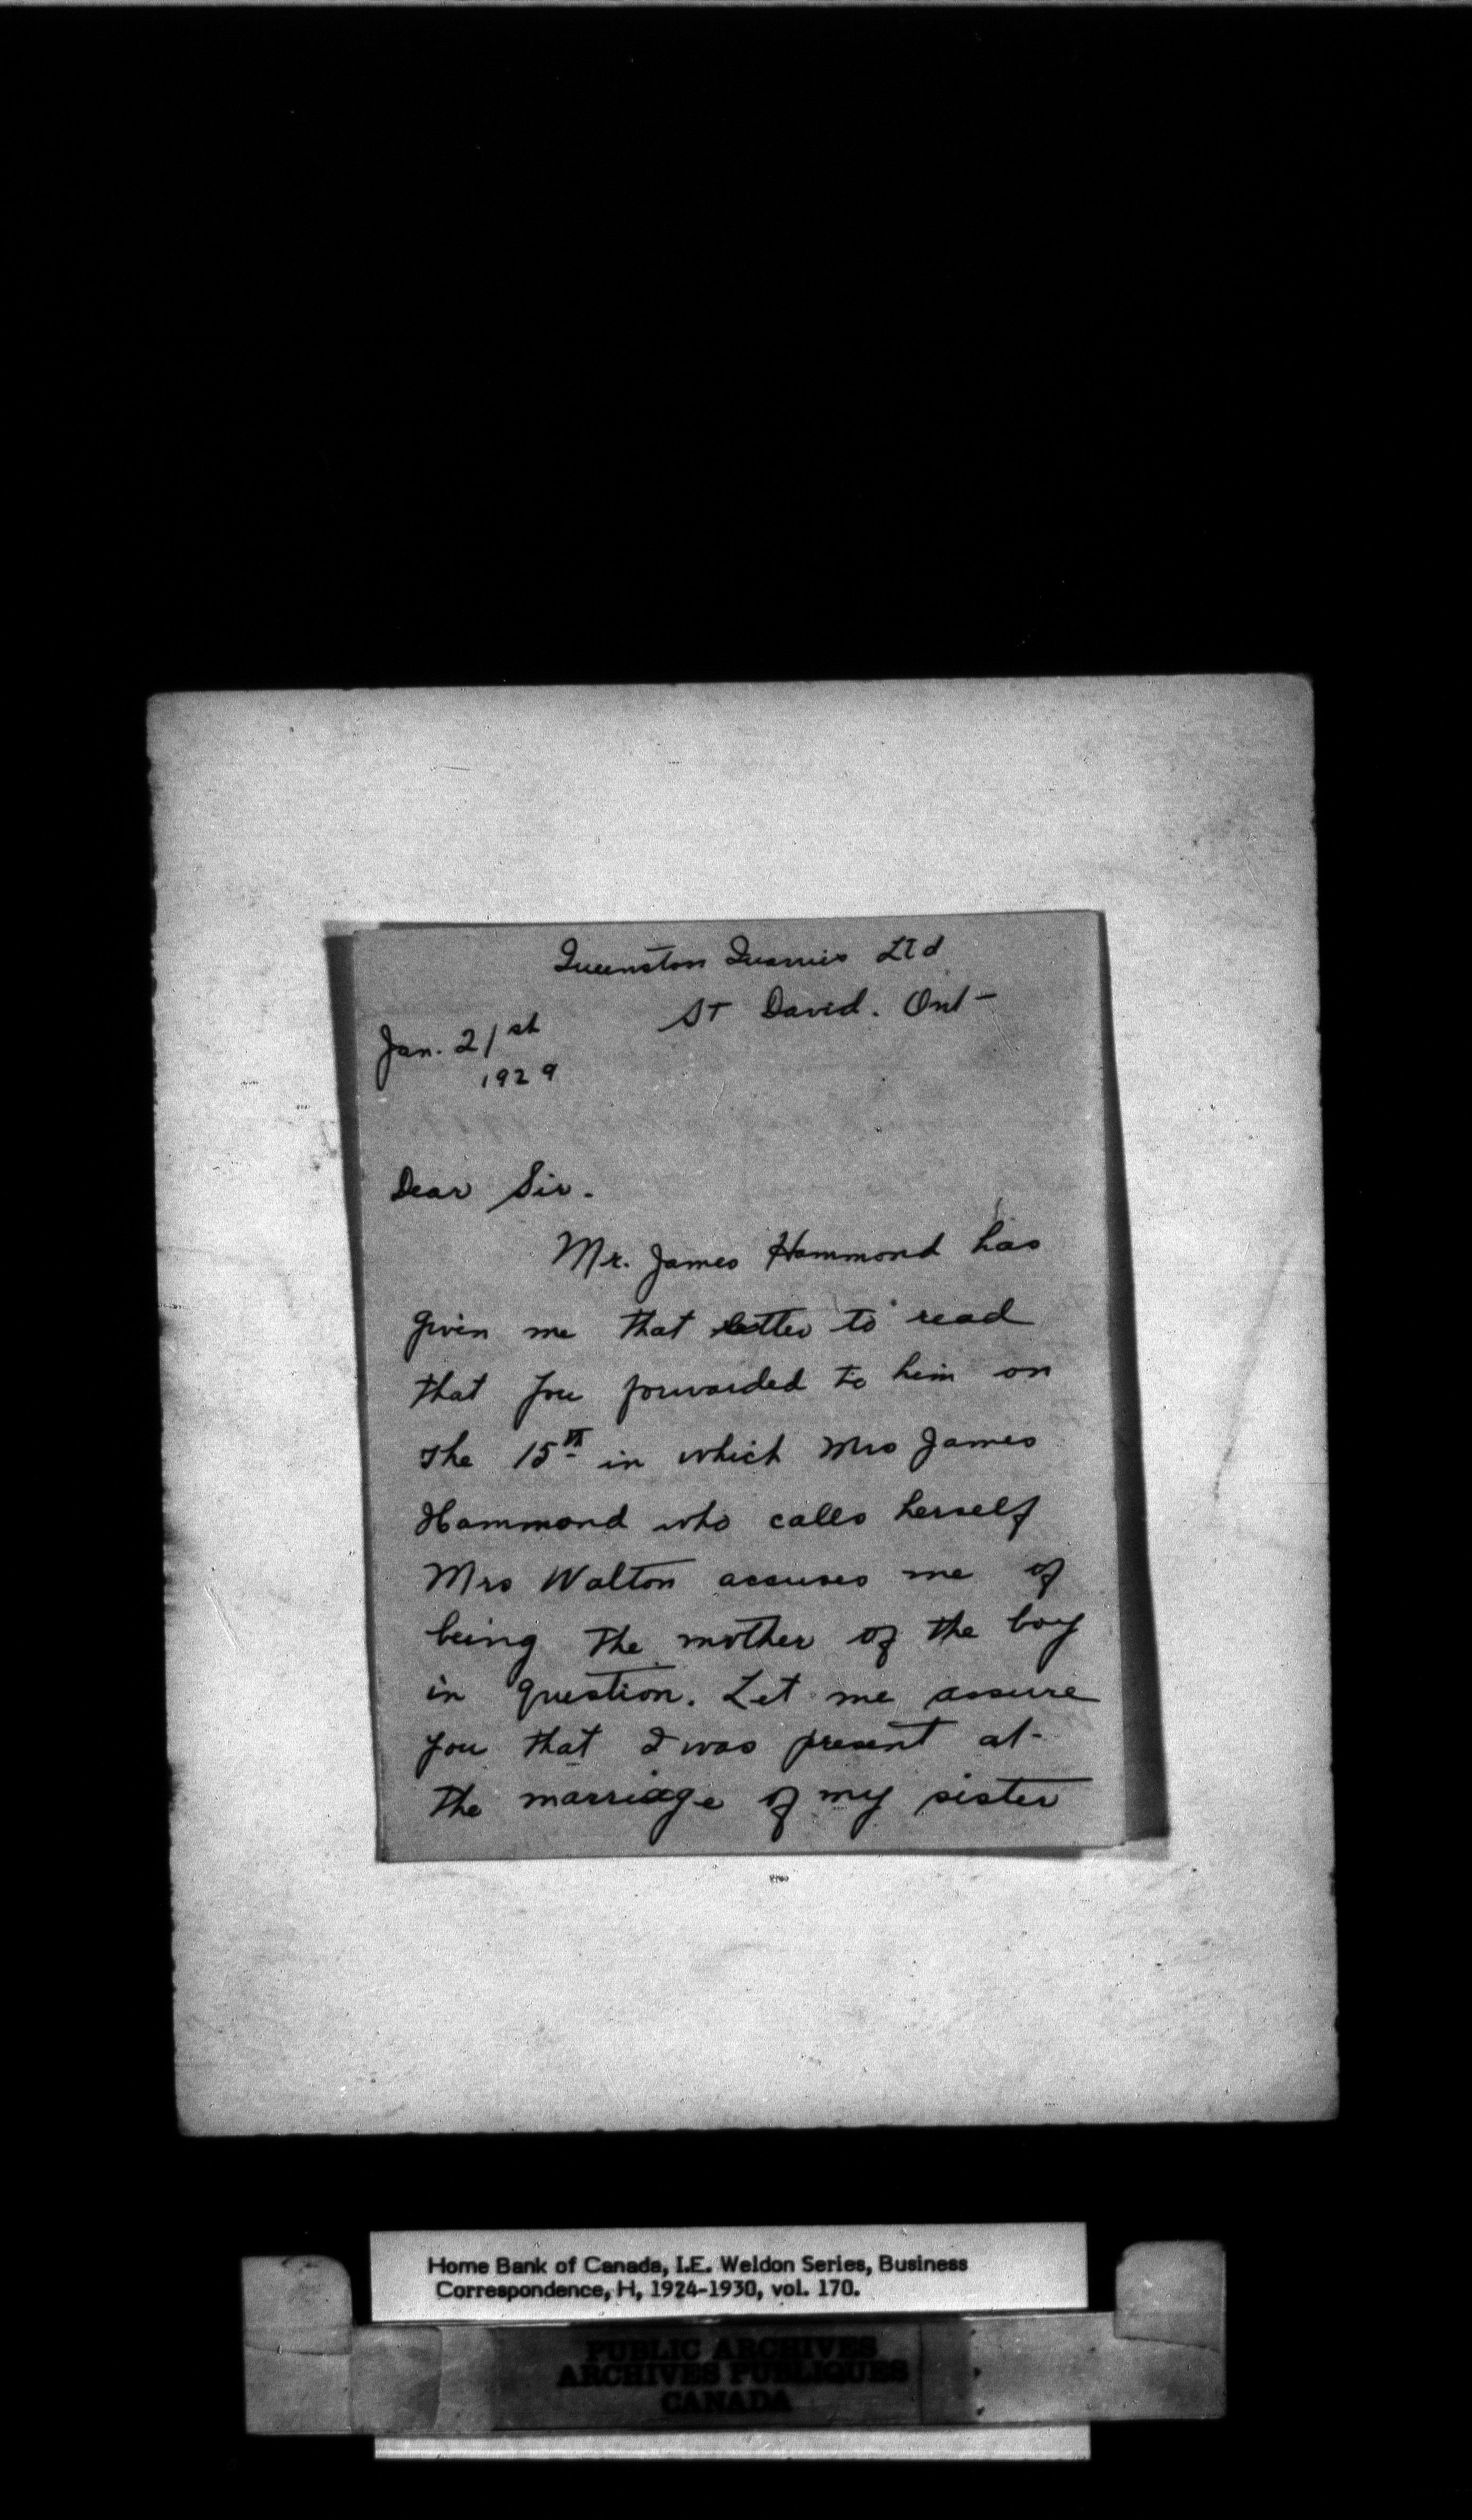 Queenston Quarries Ltd
St David. Ont-
Jan. 21st
1929
Dear Sir.
Mr. James Hammond has
given me that letter to read
that you forwarded to him on
the 15th in which Mrs James
Hammond who calls herself
Mrs Walton accuses me of
being the mother of the boy
in question. Let me assure
you that I was present at-
the marriage of my sister
Home Bank of Canada, I.E. Weldon Series, Business
Correspondence, H, 1924-1930, vol. 170.
PUBLIC ARCHIVES
ARCHIVES PUBLIQUES
CANADA